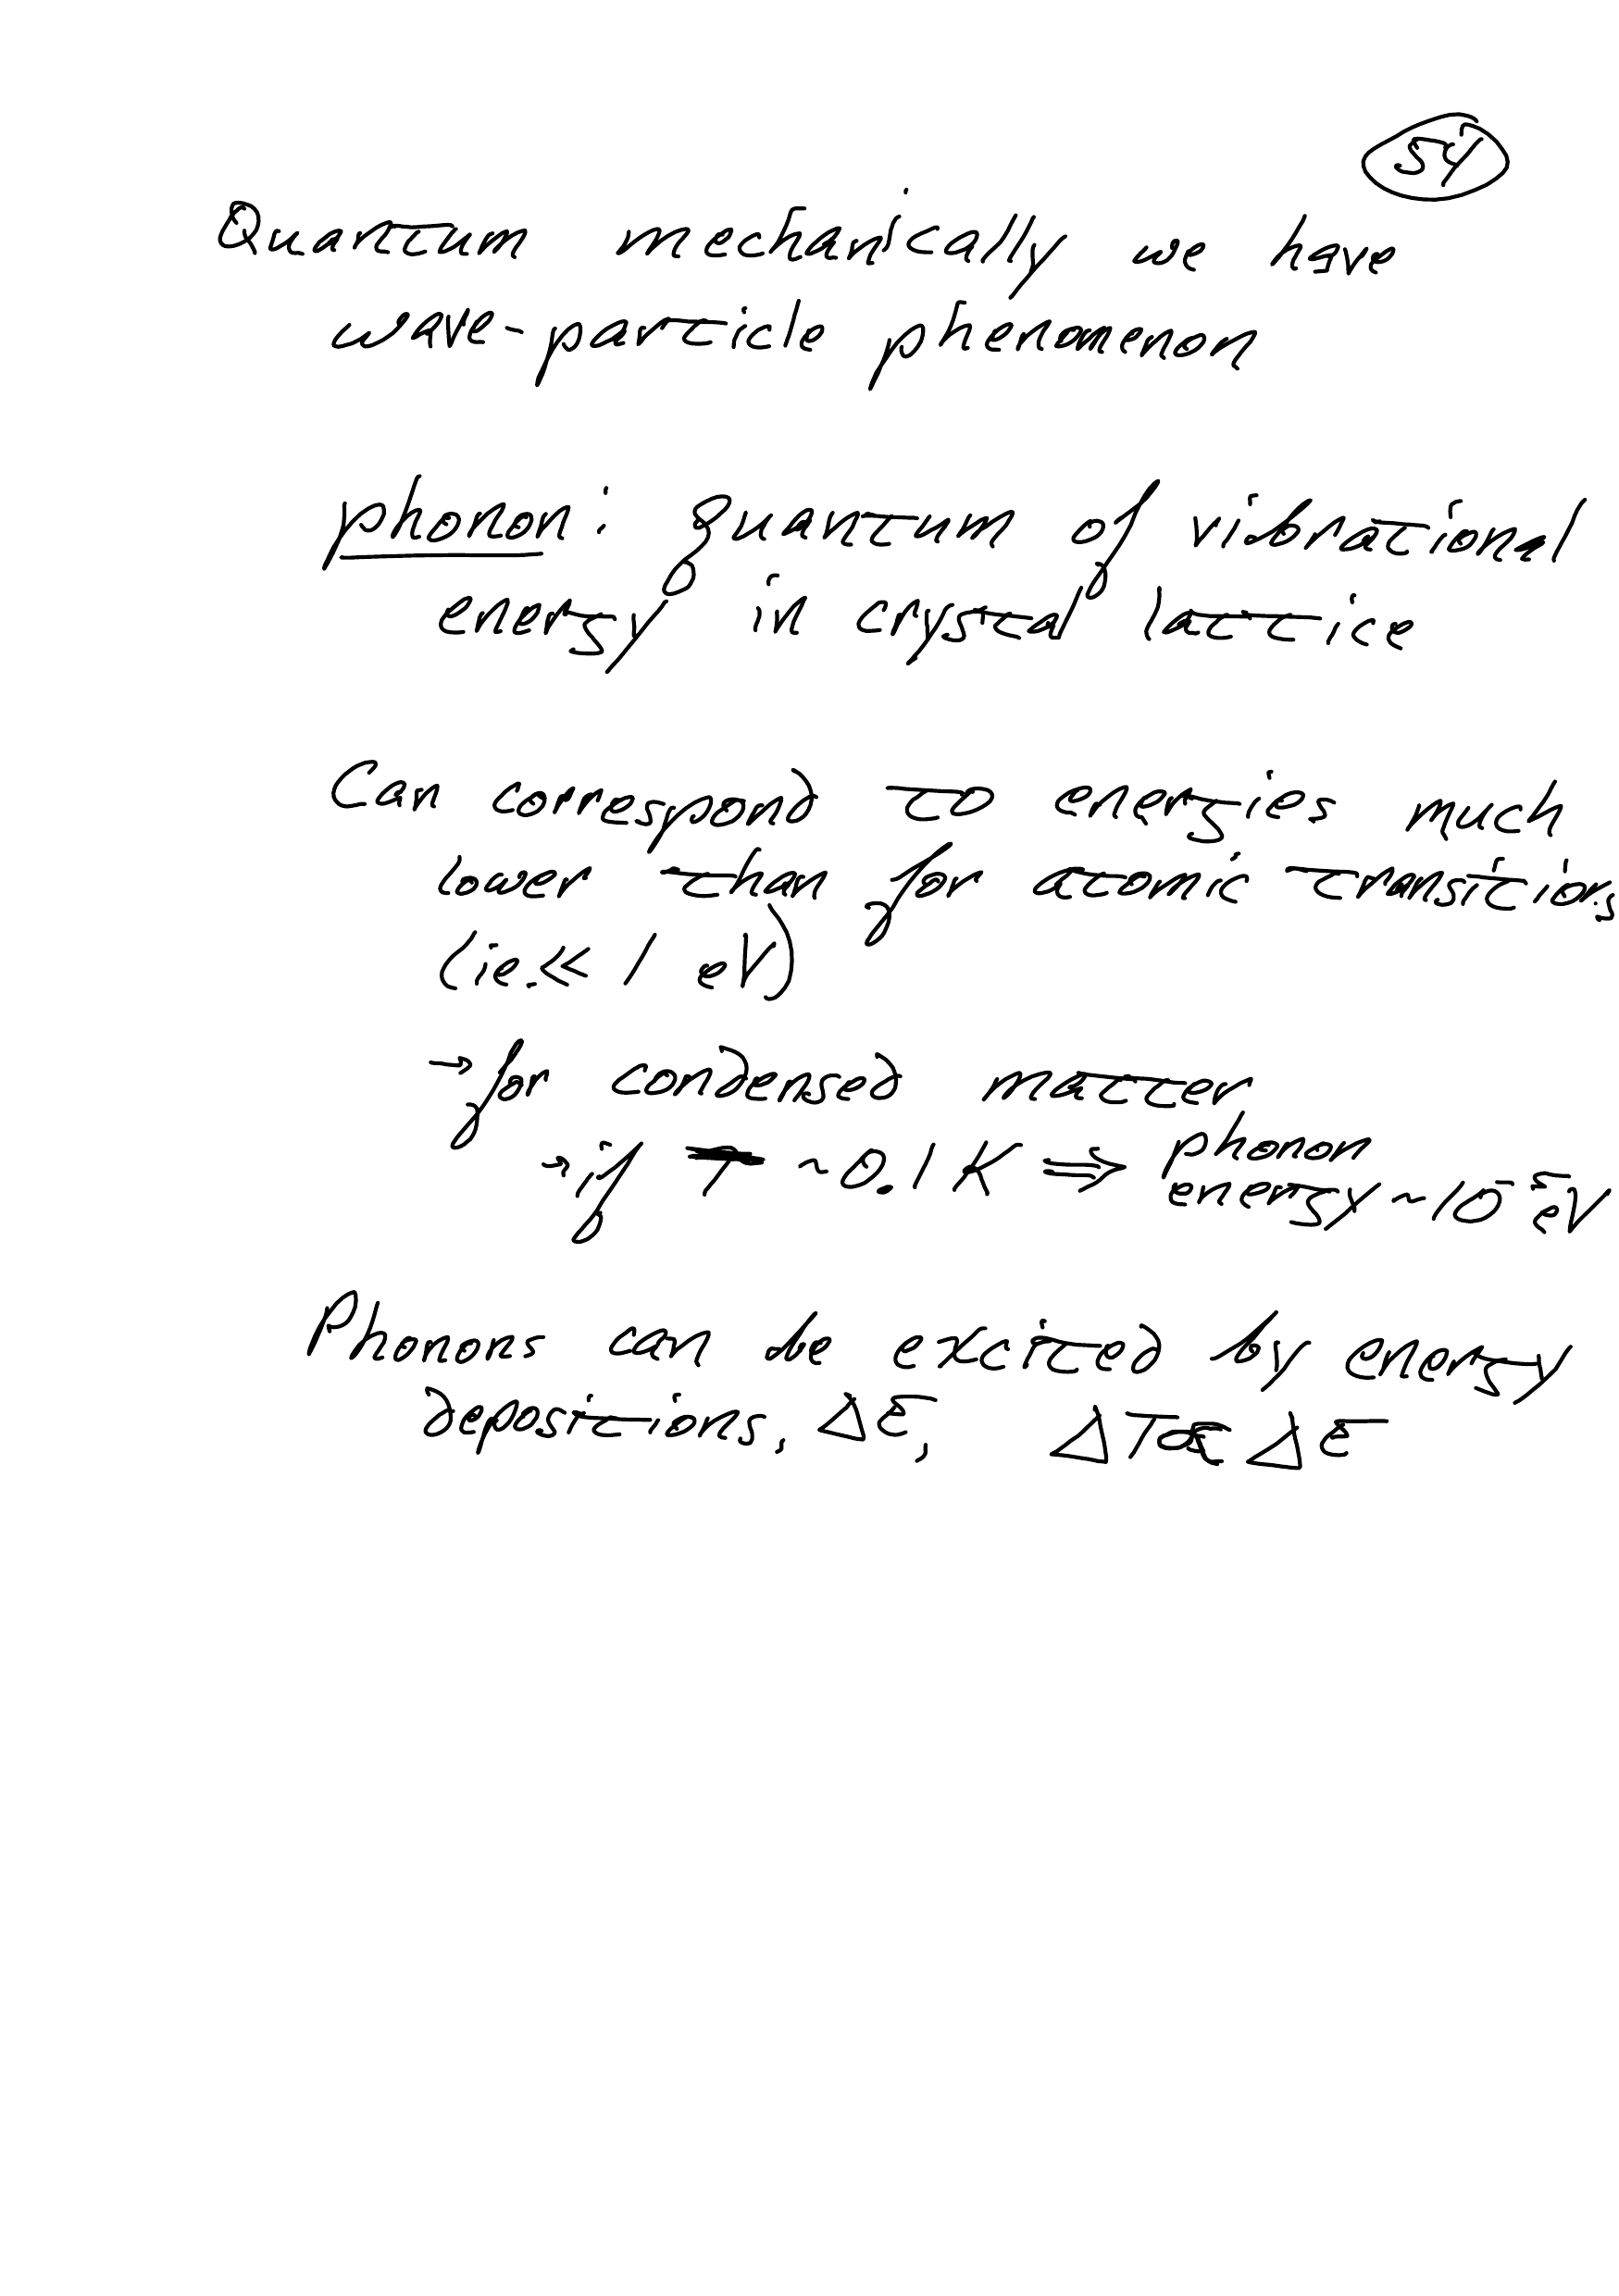 54
Quantum mechanically we have
wave-particle phenomenon
phonon: quantum of vibrational
energy in crystal lattice
Can correspond to energies much
lower than for atomic transitions
(ie. << 1 eV)
→ for condensed matter
→ if T ~0.1 K ⇒ phonon
energy ~10⁻⁵ eV
Phonons can be excited by energy
depositions, ΔE, ΔT ∝ ΔE